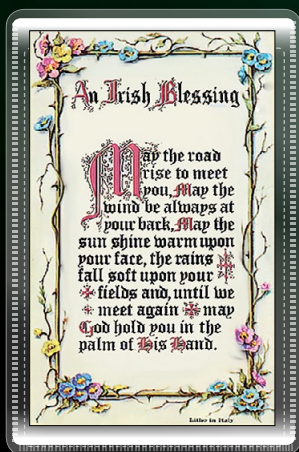 An Irish Blessing
May the road
rise to meet
you, May the
wind be always at
your back, May the
sun shine warm upon
your face, the rains
fall soft upon your
fields and, until we
meet again may
God hold you in the
palm of His Hand.
Litho in Italy